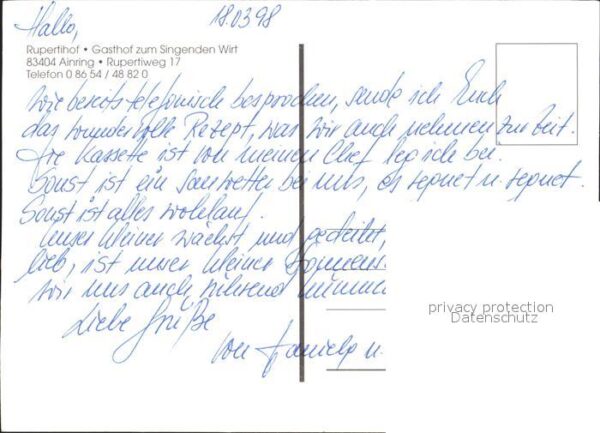 Hallo,
18.03.98
Rupertihof • Gasthof zum Singenden Wirt
83404 Ainring • Rupertiweg 17
Telefon 0 86 54 / 48 82 0
wie bereits telefonisch besprochen, sende ich Euch
das wundervolle Rezept, was wir auch nehmen zur Zeit.
Die Kassette ist von meinen Chef leg ich bei.
Sonst ist ein Sauwetter bei uns, es regnet u. regnet.
Sonst ist alles wohlauf.
Unser kleiner wächst und gedeiht,
lieb, ist unser kleiner
wir uns auch während
Liebe Grüße
von Daniela u.
privacy protection
Datenschutz